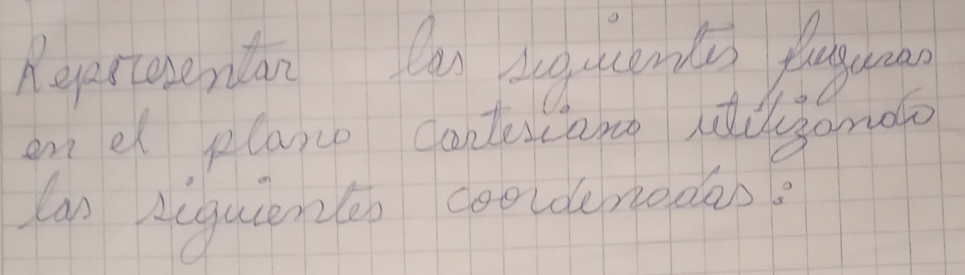 Representar las siguientes fuguras
en el plano cartesiano utilizando
las siguientes coordenadas: